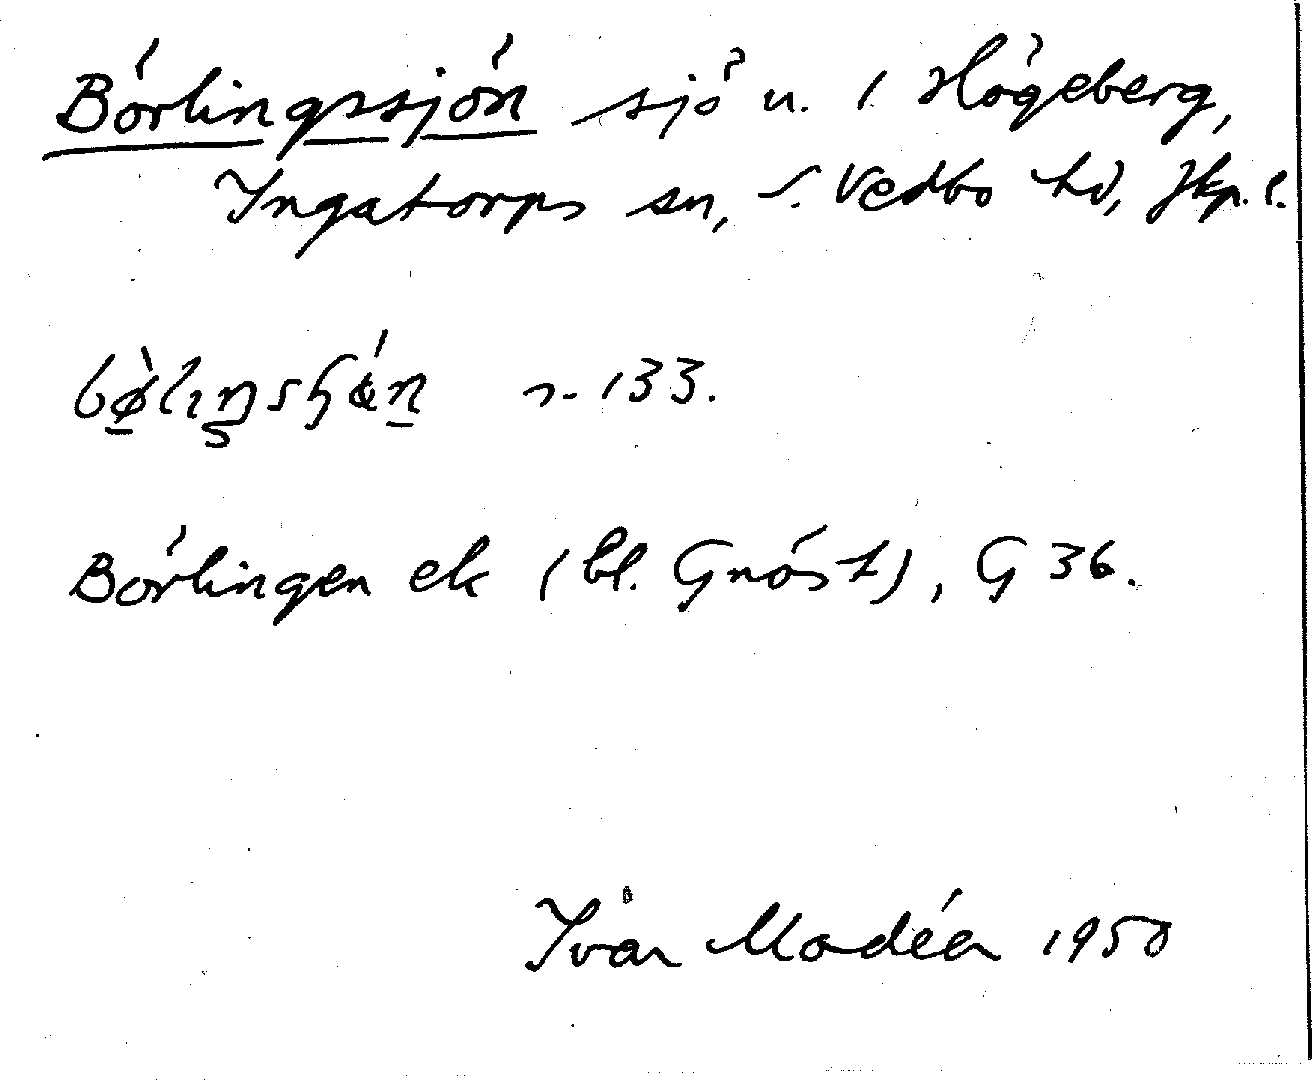 Börlingssjön sjö u. i Högeberg,
Ingatorps sn, S. Vedbo hd, Jkp. l.
n. 133.
Börlingen ek (bl. Gnöst), G 36.
Ivar Modéer 1950